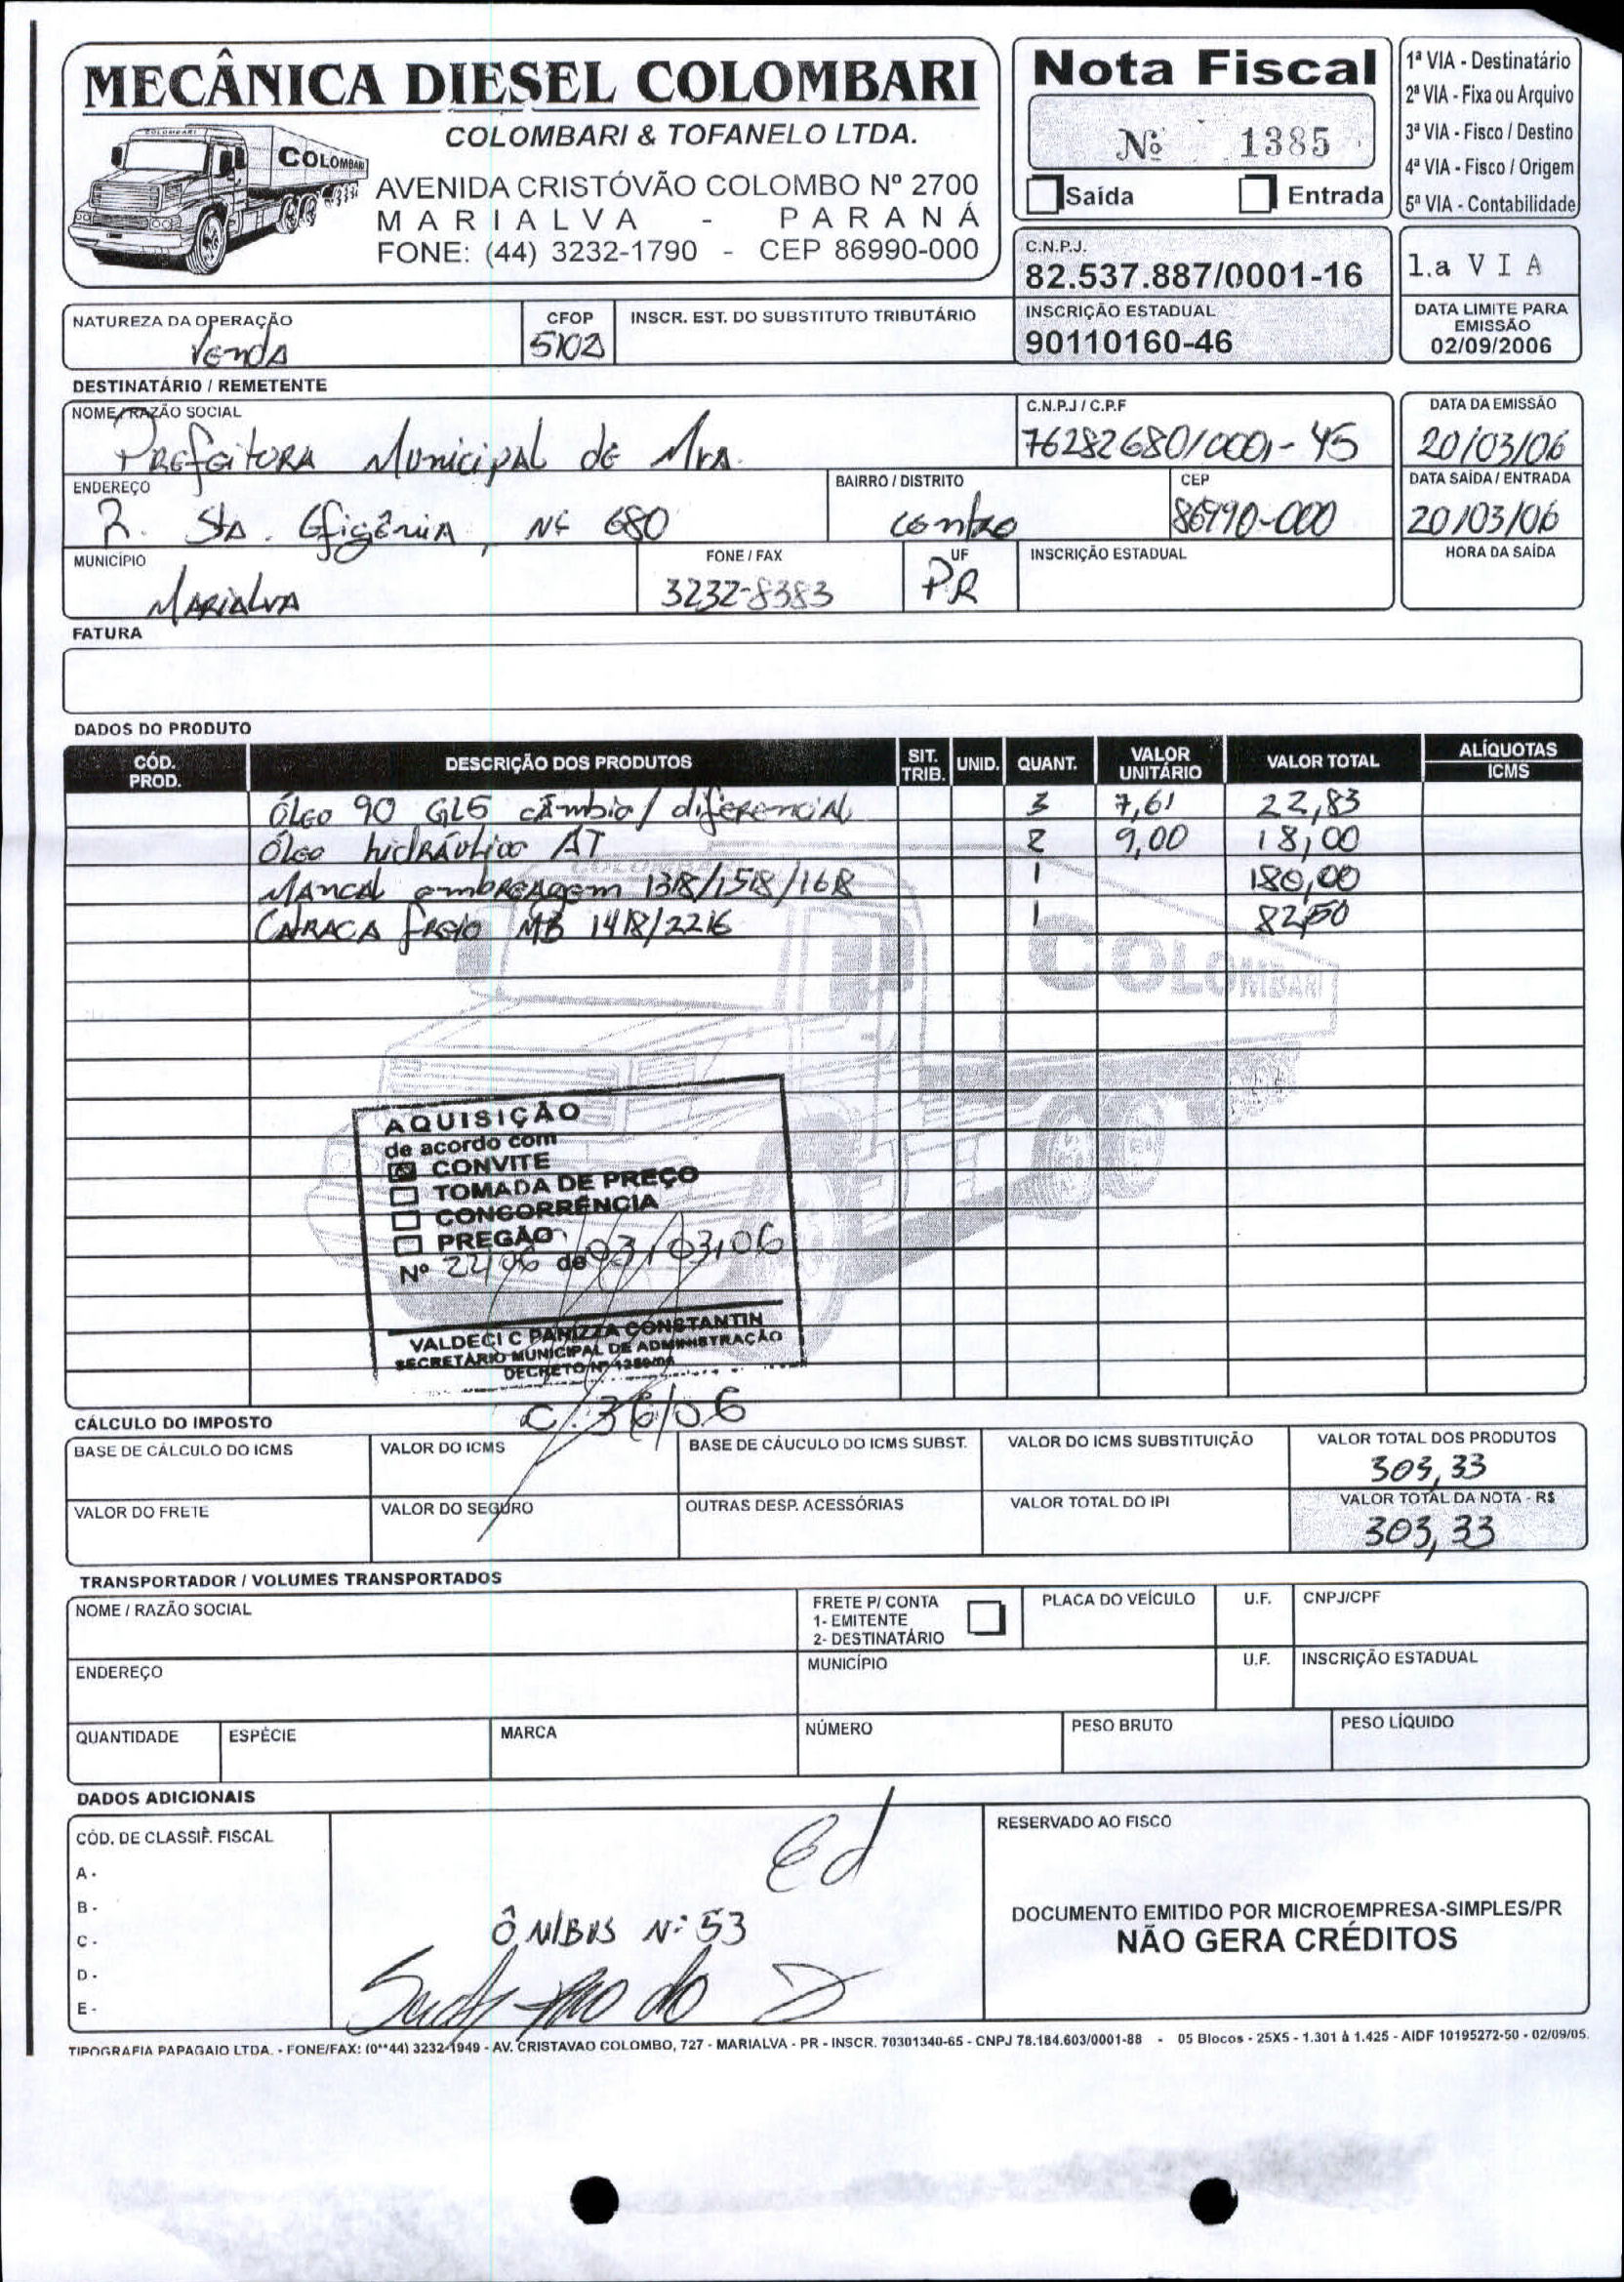 MECÂNICA DIESEL COLOMBARI
COLOMBARI & TOFANELO LTDA.
AVENIDA CRISTÓVÃO COLOMBO Nº 2700
MARIALVA - PARANÁ
FONE: (44) 3232-1790 - CEP 86990-000
COLOMBARI
COLOMBARI
Nota Fiscal
Nº 1385
Saída Entrada
1ª VIA - Destinatário
2ª VIA - Fixa ou Arquivo
3ª VIA - Fisco / Destino
4ª VIA - Fisco / Origem
5ª VIA - Contabilidade
C.N.P.J.
82.537.887/0001-16
1.a VIA
NATUREZA DA OPERAÇÃO
Venda
CFOP
5102
INSCR. EST. DO SUBSTITUTO TRIBUTÁRIO
INSCRIÇÃO ESTADUAL
90110160-46
DATA LIMITE PARA
EMISSÃO
02/09/2006
DESTINATÁRIO / REMETENTE
NOME/RAZÃO SOCIAL
Prefeitura Municipal de Mva.
C.N.P.J / C.P.F
76282680/0001-45
DATA DA EMISSÃO
20/03/06
ENDEREÇO
R. Sta. Efigênia, Nº 680
BAIRRO / DISTRITO
centro
CEP
86990-000
DATA SAÍDA / ENTRADA
20/03/06
MUNICÍPIO
Marialva
FONE / FAX
3232-8383
UF
PR
INSCRIÇÃO ESTADUAL
HORA DA SAÍDA
FATURA
DADOS DO PRODUTO
CÓD. PROD. DESCRIÇÃO DOS PRODUTOS SIT. TRIB. UNID. QUANT. VALOR UNITÁRIO VALOR TOTAL ALÍQUOTAS ICMS
Óleo 90 GL5 câmbio/diferencial 3 7,61 22,83
Óleo hidráulico AT 2 9,00 18,00
Mancal embreagem 1 180,00
freio MB 1418/2216 1 82,50
COLOMBARI
COLOMBARI
AQUISIÇÃO
de acordo com
CONVITE
TOMADA DE PREÇO
CONCORRÊNCIA
PREGÃO
Nº 22/06 de 03/03/06
VALDECI C PANIZZA CONSTANTIN
SECRETÁRIO MUNICIPAL DE ADMINISTRAÇÃO
DECRETO Nº
C. 36/06
CÁLCULO DO IMPOSTO
BASE DE CÁLCULO DO ICMS
VALOR DO ICMS
BASE DE CÁUCULO DO ICMS SUBST.
VALOR DO ICMS SUBSTITUIÇÃO
VALOR TOTAL DOS PRODUTOS
303,33
VALOR DO FRETE
VALOR DO SEGURO
OUTRAS DESP. ACESSÓRIAS
VALOR TOTAL DO IPI
VALOR TOTAL DA NOTA - R$
303,33
TRANSPORTADOR / VOLUMES TRANSPORTADOS
NOME / RAZÃO SOCIAL
FRETE P/ CONTA
1- EMITENTE
2- DESTINATÁRIO
PLACA DO VEÍCULO
U.F.
CNPJ/CPF
ENDEREÇO
MUNICÍPIO
U.F.
INSCRIÇÃO ESTADUAL
QUANTIDADE
ESPÉCIE
MARCA
NÚMERO
PESO BRUTO
PESO LÍQUIDO
DADOS ADICIONAIS
CÓD. DE CLASSIF. FISCAL
A -
B -
C -
D -
E -
Ed
ÔNIBUS Nº 53
RESERVADO AO FISCO
DOCUMENTO EMITIDO POR MICROEMPRESA-SIMPLES/PR
NÃO GERA CRÉDITOS
TIPOGRAFIA PAPAGAIO LTDA. - FONE/FAX: (0**44) 3232-1949 - AV. CRISTAVAO COLOMBO, 727 - MARIALVA - PR - INSCR. 70301340-65 - CNPJ 78.184.603/0001-88 - 05 Blocos - 25X5 - 1.301 à 1.425 - AIDF 10195272-50 - 02/09/05.